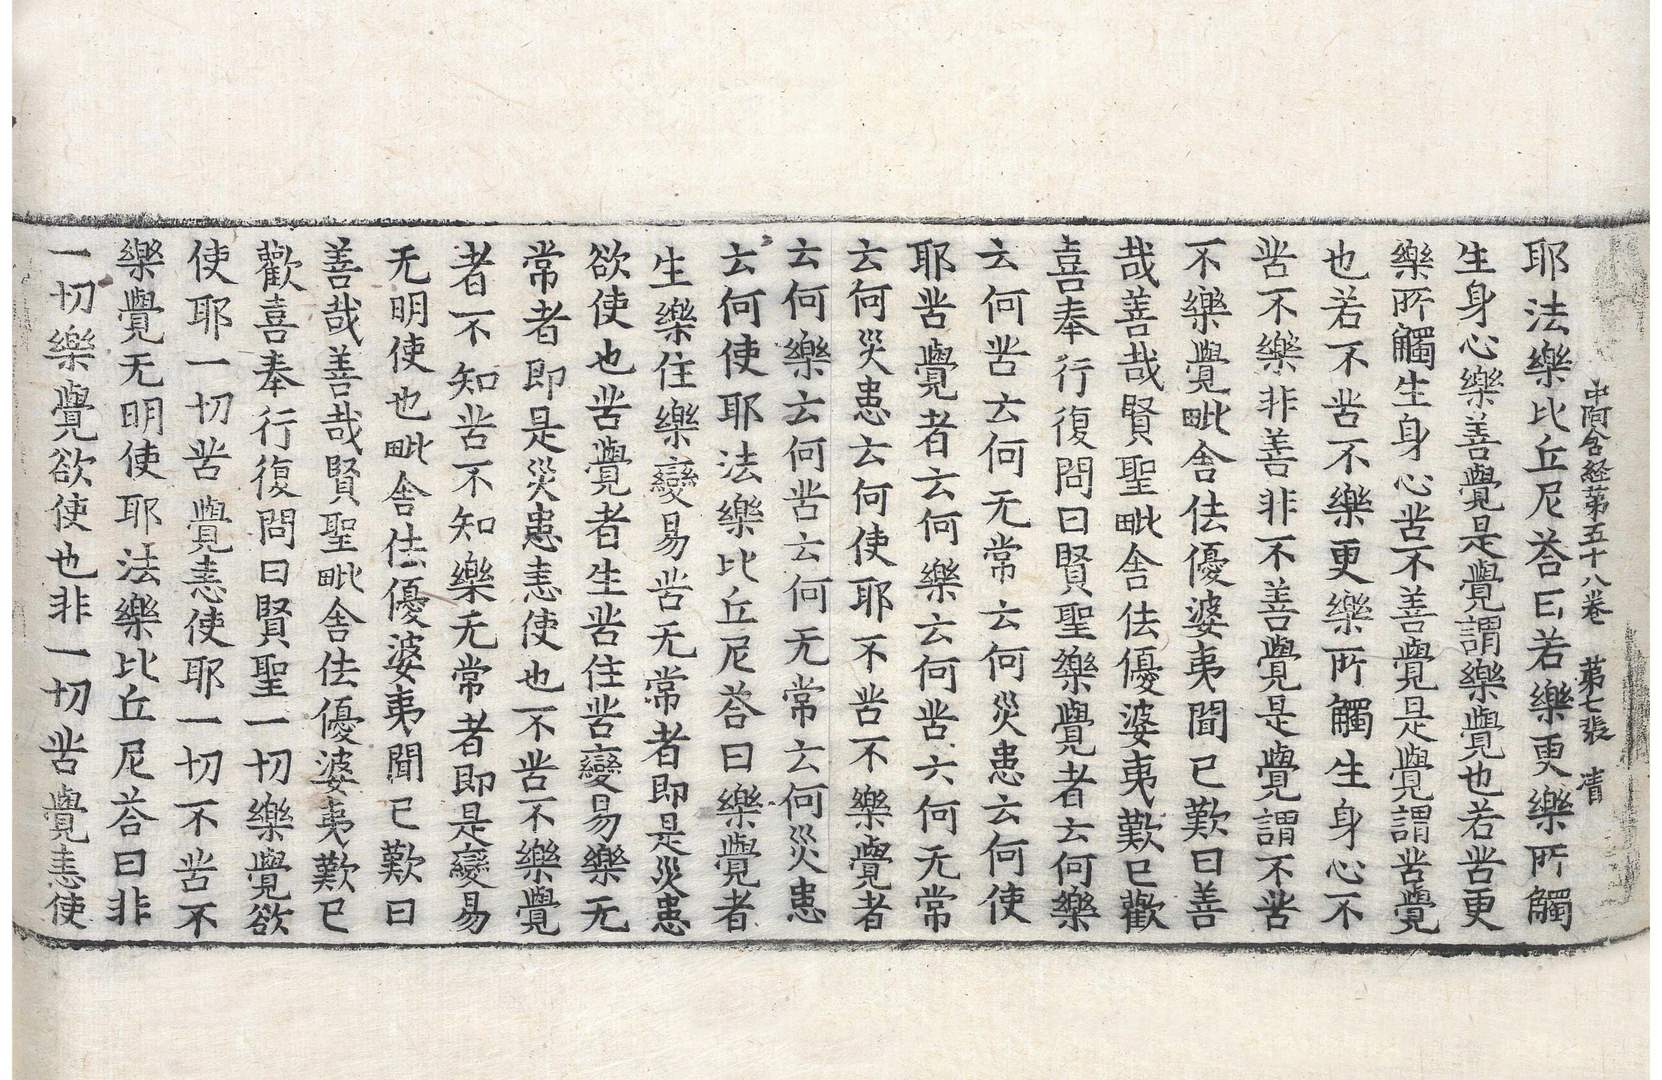 中阿含経第五十八卷 第七張 凊
耶法樂比丘尼荅曰若樂更樂所觸
生身心樂善覺是覺謂樂覺也若苦更
樂所觸生身心苦不善覺是覺謂苦覺
也若不苦不樂更樂所觸生身心不
苦不樂非善非不善覺是覺謂不苦
不樂覺毗舍佉優婆夷聞已歎曰善
哉善哉賢聖毗舍佉優婆夷歎已歡
喜奉行復問曰賢聖樂覺者云何樂
云何苦云何无常云何災患云何使
耶苦覺者云何樂云何苦六何无常
云何災患云何使耶不苦不樂覺者
云何樂云何苦云何无常云何災患
云何使耶法樂比丘尼荅曰樂覺者
生樂住樂變易苦无常者即是災患
欲使也苦覺者生苦住苦變易樂无
常者即是災患恚使也不苦不樂覺
者不知苦不知樂无常者即是變易
无明使也毗舍佉優婆夷聞已歎曰
善哉善哉賢聖毗舍佉優婆夷歎已
歡喜奉行復問曰賢聖一切樂覺欲
使耶一切苦覺恚使耶一切不苦不
樂覺无明使耶法樂比丘尼荅曰非
一切樂覺欲使也非一切苦覺恚使